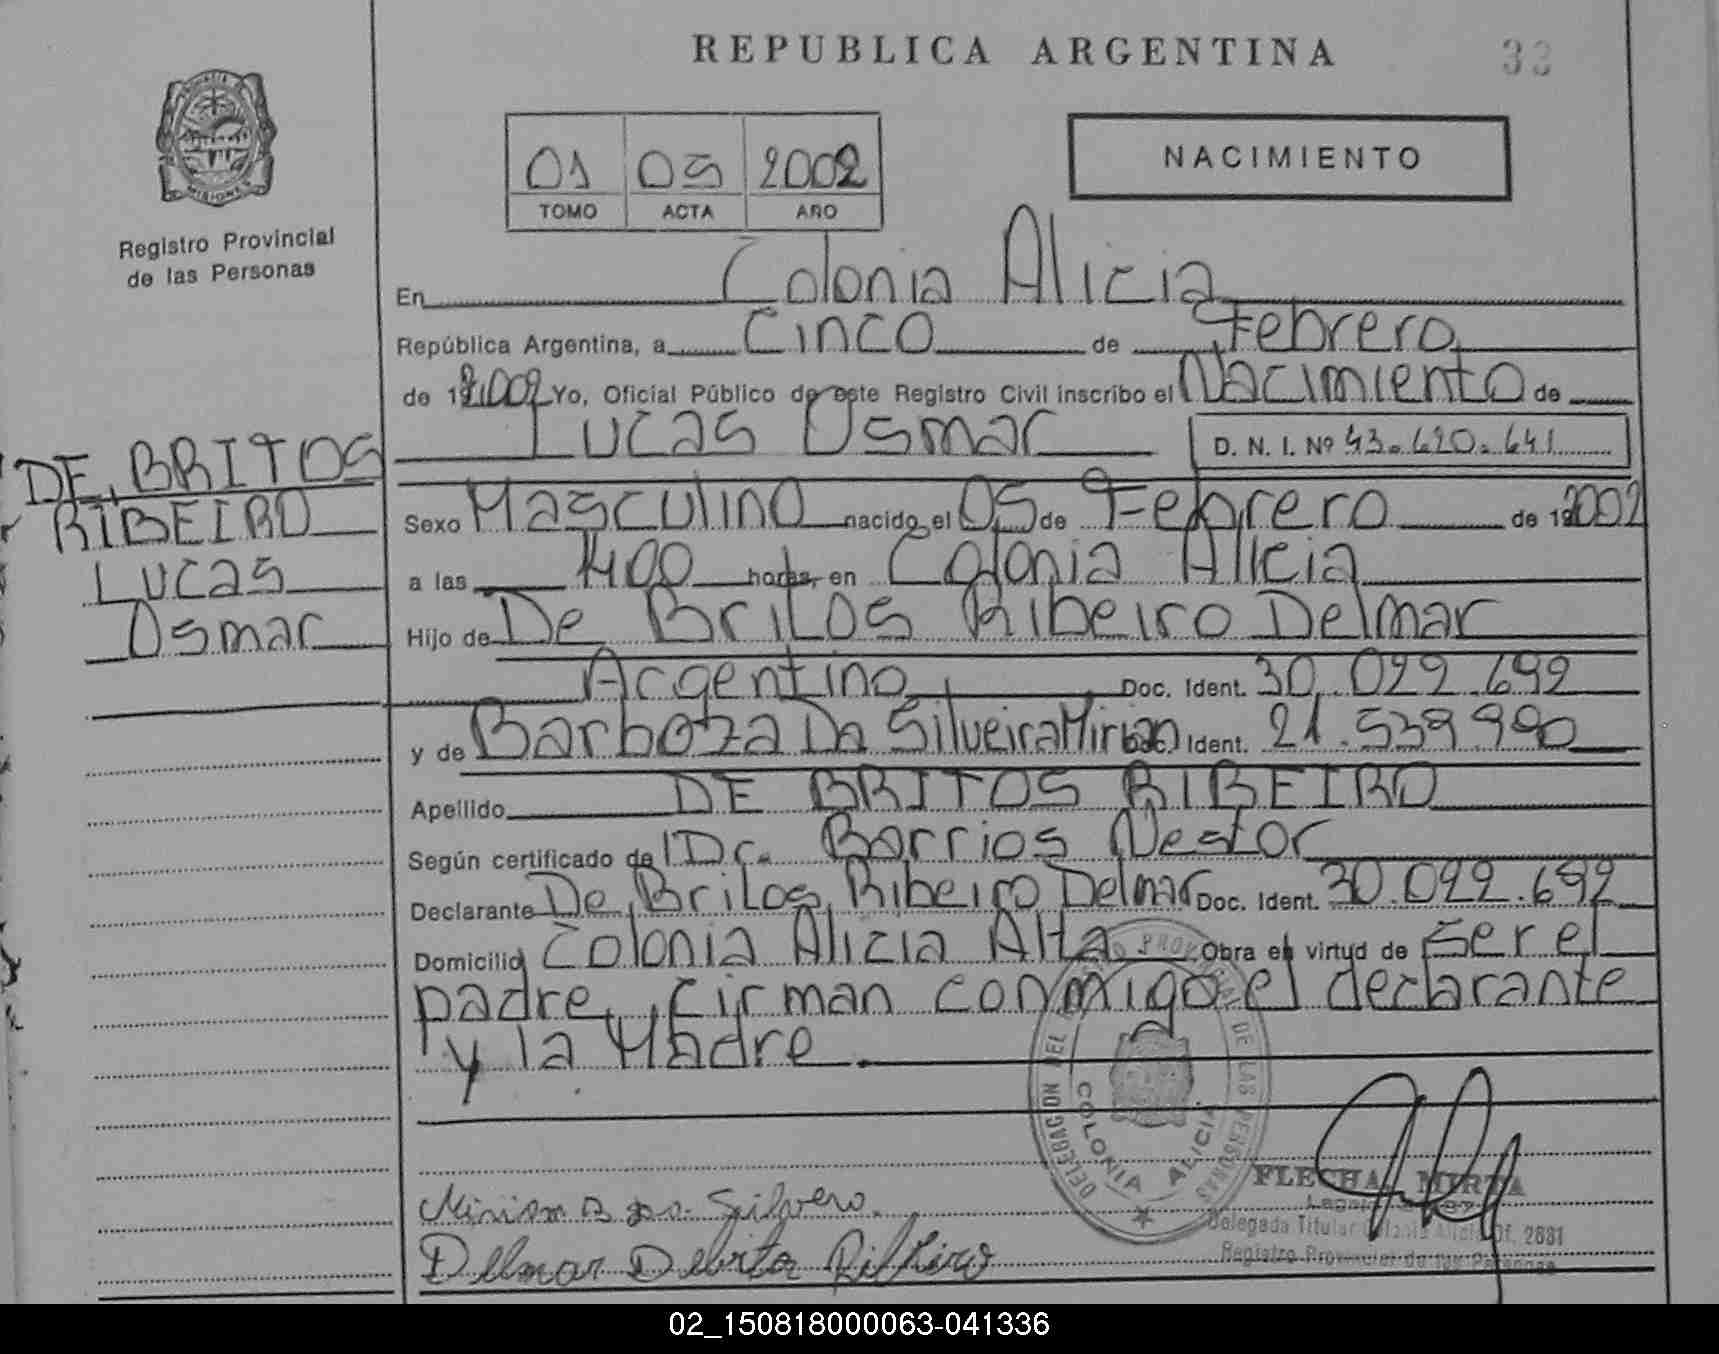 REPUBLICA ARGENTINA
33
PROVINCIA DE MISIONES
Registro Provincial
de las Personas
01 05 2002
TOMO ACTA AÑO
NACIMIENTO
En Colonia Alicia
República Argentina, a Cinco de Febrero
de 192002 Yo, Oficial Público de este Registro Civil inscribo el Nacimiento de
Lucas Osmar D. N. I. Nº 43.620.641
DE BRITOS
RIBEIRO
Lucas
Osmar
Sexo Masculino nacido el 05 de Febrero de 192002
a las 1400 horas, en Colonia Alicia
Hijo de De Britos Ribeiro Delmar
Argentino Doc. Ident. 30.022.692
y de Barboza Da Silveira Mirian Doc. Ident. 21.539.990
Apellido DE BRITOS RIBEIRO
Según certificado de Dr. Barrios Nestor
Declarante De Britos Ribeiro Delmar Doc. Ident. 30.022.692
Domicilio Colonia Alicia Alta Obra en virtud de Ser el
padre, firman conmigo el declarante
y la Madre.
DELEGACION DEL REGISTRO PROVINCIAL DE LAS PERSONAS
COLONIA ALICIA
FLECHA, MIRTA
Delegada Titular Colonia Alicia Of. 2881
Registro Provincial de las Personas
Delmar
02_150818000063-041336